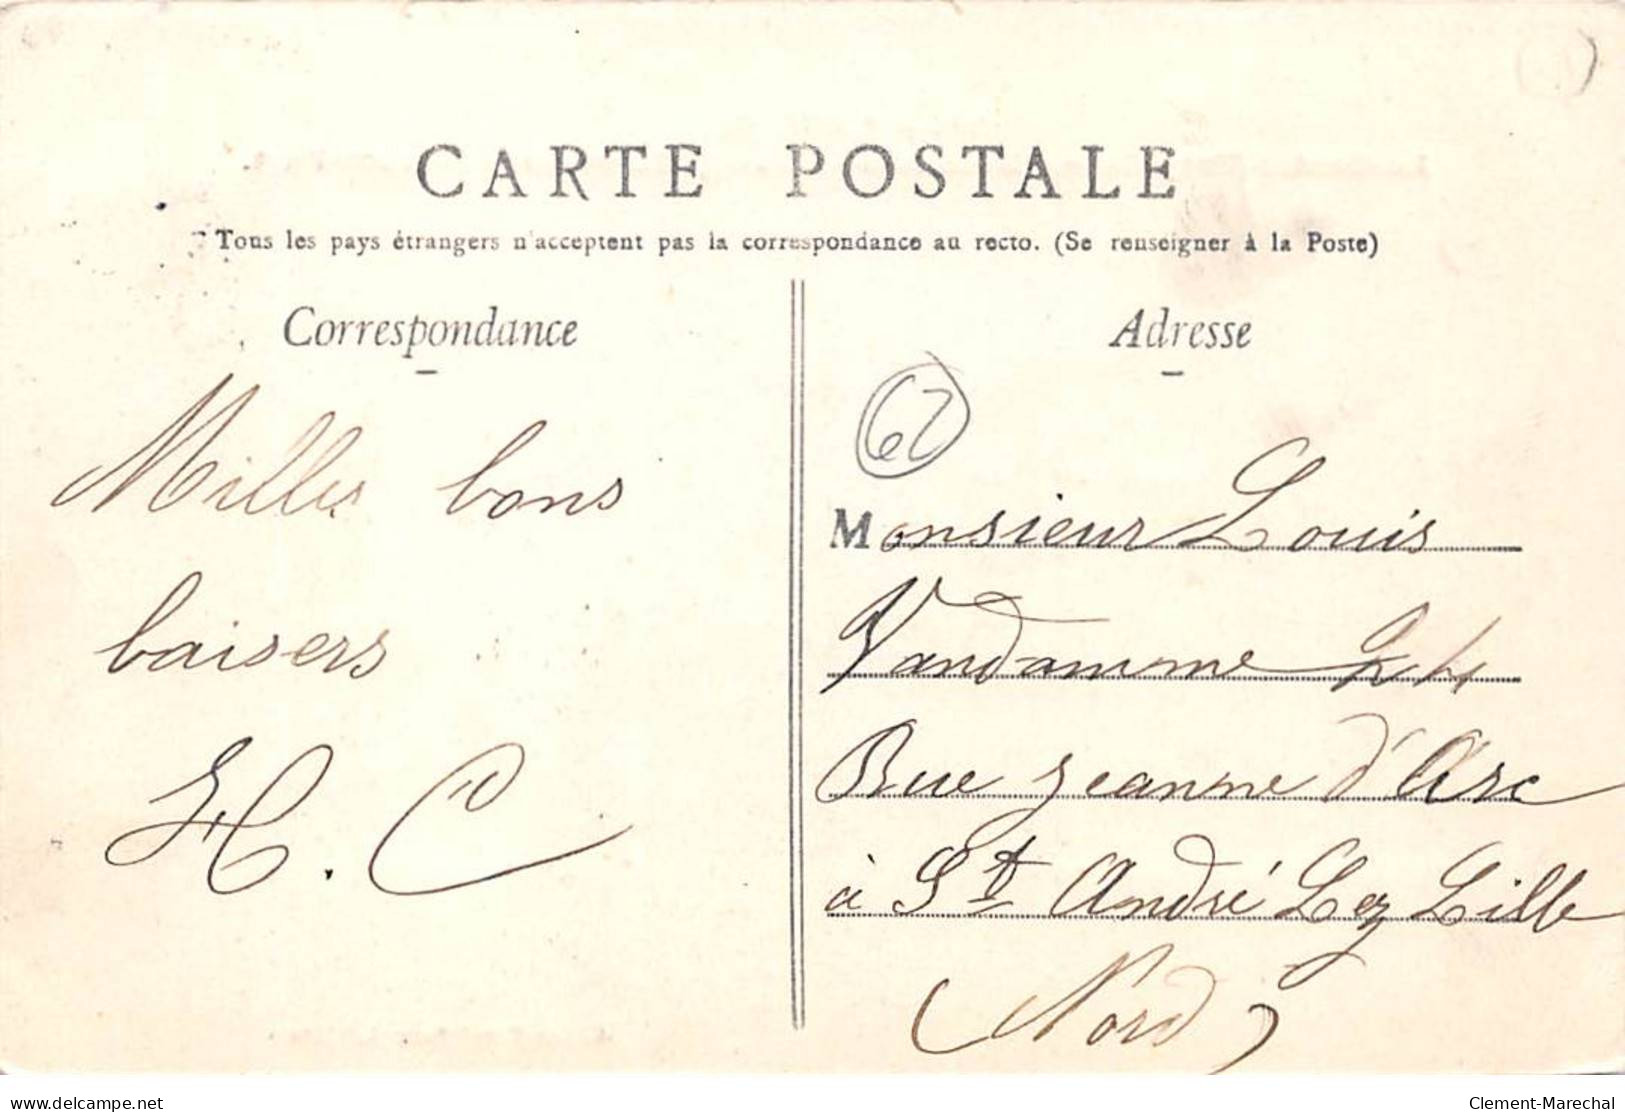 CARTE POSTALE
Tous les pays étrangers n'acceptent pas la correspondance au recto. (Se renseigner à la Poste)
Correspondance
Milles bons
baisers
H. C
Adresse
62
Monsieur Louis
Vandamme 24
Rue Jeanne d'Arc
à St André Lez Lille
(Nord)
delcampe.net
Clement-Marechal